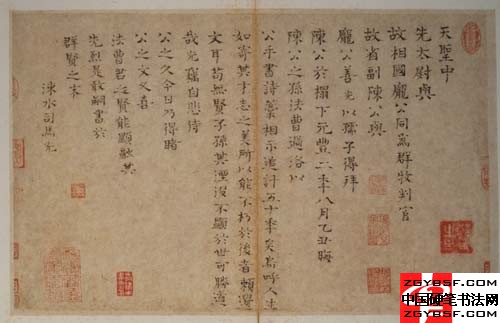 天聖中
先太尉與
故相國龐公同爲群牧判官
故省副陳公與
龐公善光以孺子得拜
陳公於榻下元豐二年八月乙丑晦
陳公之孫法曹過洛以
公手書詩藁相示追計五十年矣嗚呼人生
如寄其才志之美所以能不朽於後者賴遺
文耳苟無賢子孫其湮沒不顯於世可勝道
哉光雖自悲侍
公之久今日乃得睹
公之文又喜
法曹君之賢能顯融其
先烈是敢嗣書於
群賢之末
涑水司馬光
ZGYBSF.COM
中国硬笔书法网
ZGYBSF.COM